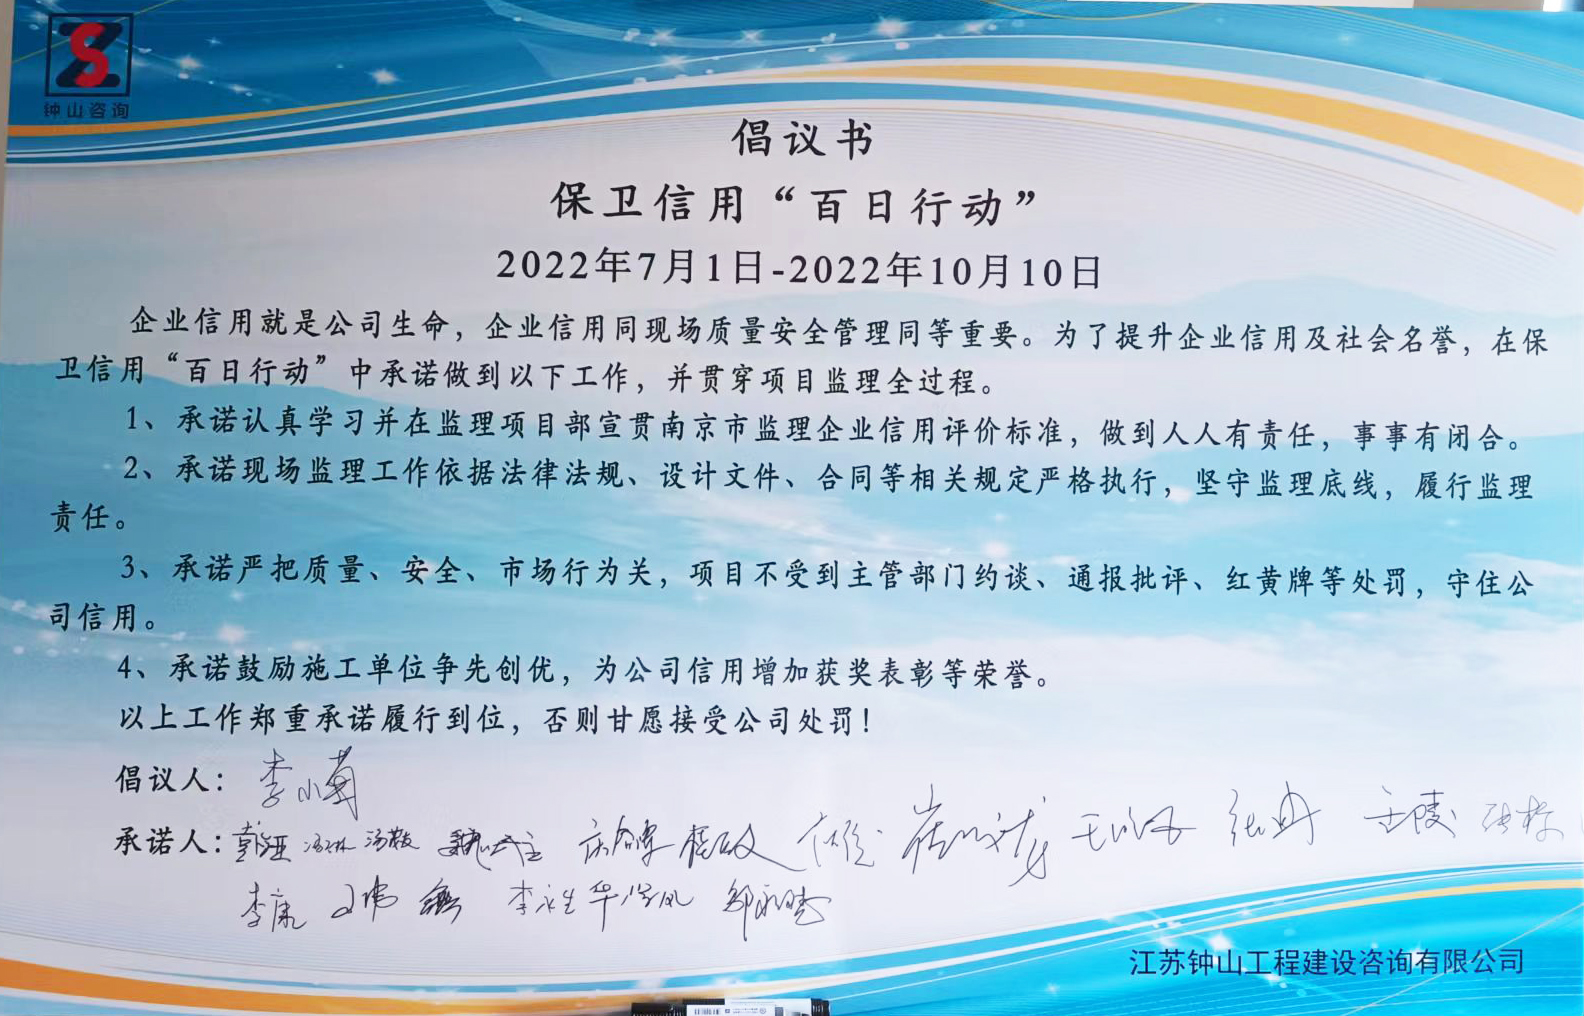 钟山咨询
倡议书
保卫信用“百日行动”
2022年7月1日-2022年10月10日
企业信用就是公司生命，企业信用同现场质量安全管理同等重要。为了提升企业信用及社会名誉，在保
卫信用“百日行动”中承诺做到以下工作，并贯穿项目监理全过程。
1、承诺认真学习并在监理项目部宣贯南京市监理企业信用评价标准，做到人人有责任，事事有闭合。
2、承诺现场监理工作依据法律法规、设计文件、合同等相关规定严格执行，坚守监理底线，履行监理
责任。
3、承诺严把质量、安全、市场行为关，项目不受到主管部门约谈、通报批评、红黄牌等处罚，守住公
司信用。
4、承诺鼓励施工单位争先创优，为公司信用增加获奖表彰等荣誉。
以上工作郑重承诺履行到位，否则甘愿接受公司处罚！
倡议人：李小菊
承诺人：
李康 李永生
江苏钟山工程建设咨询有限公司